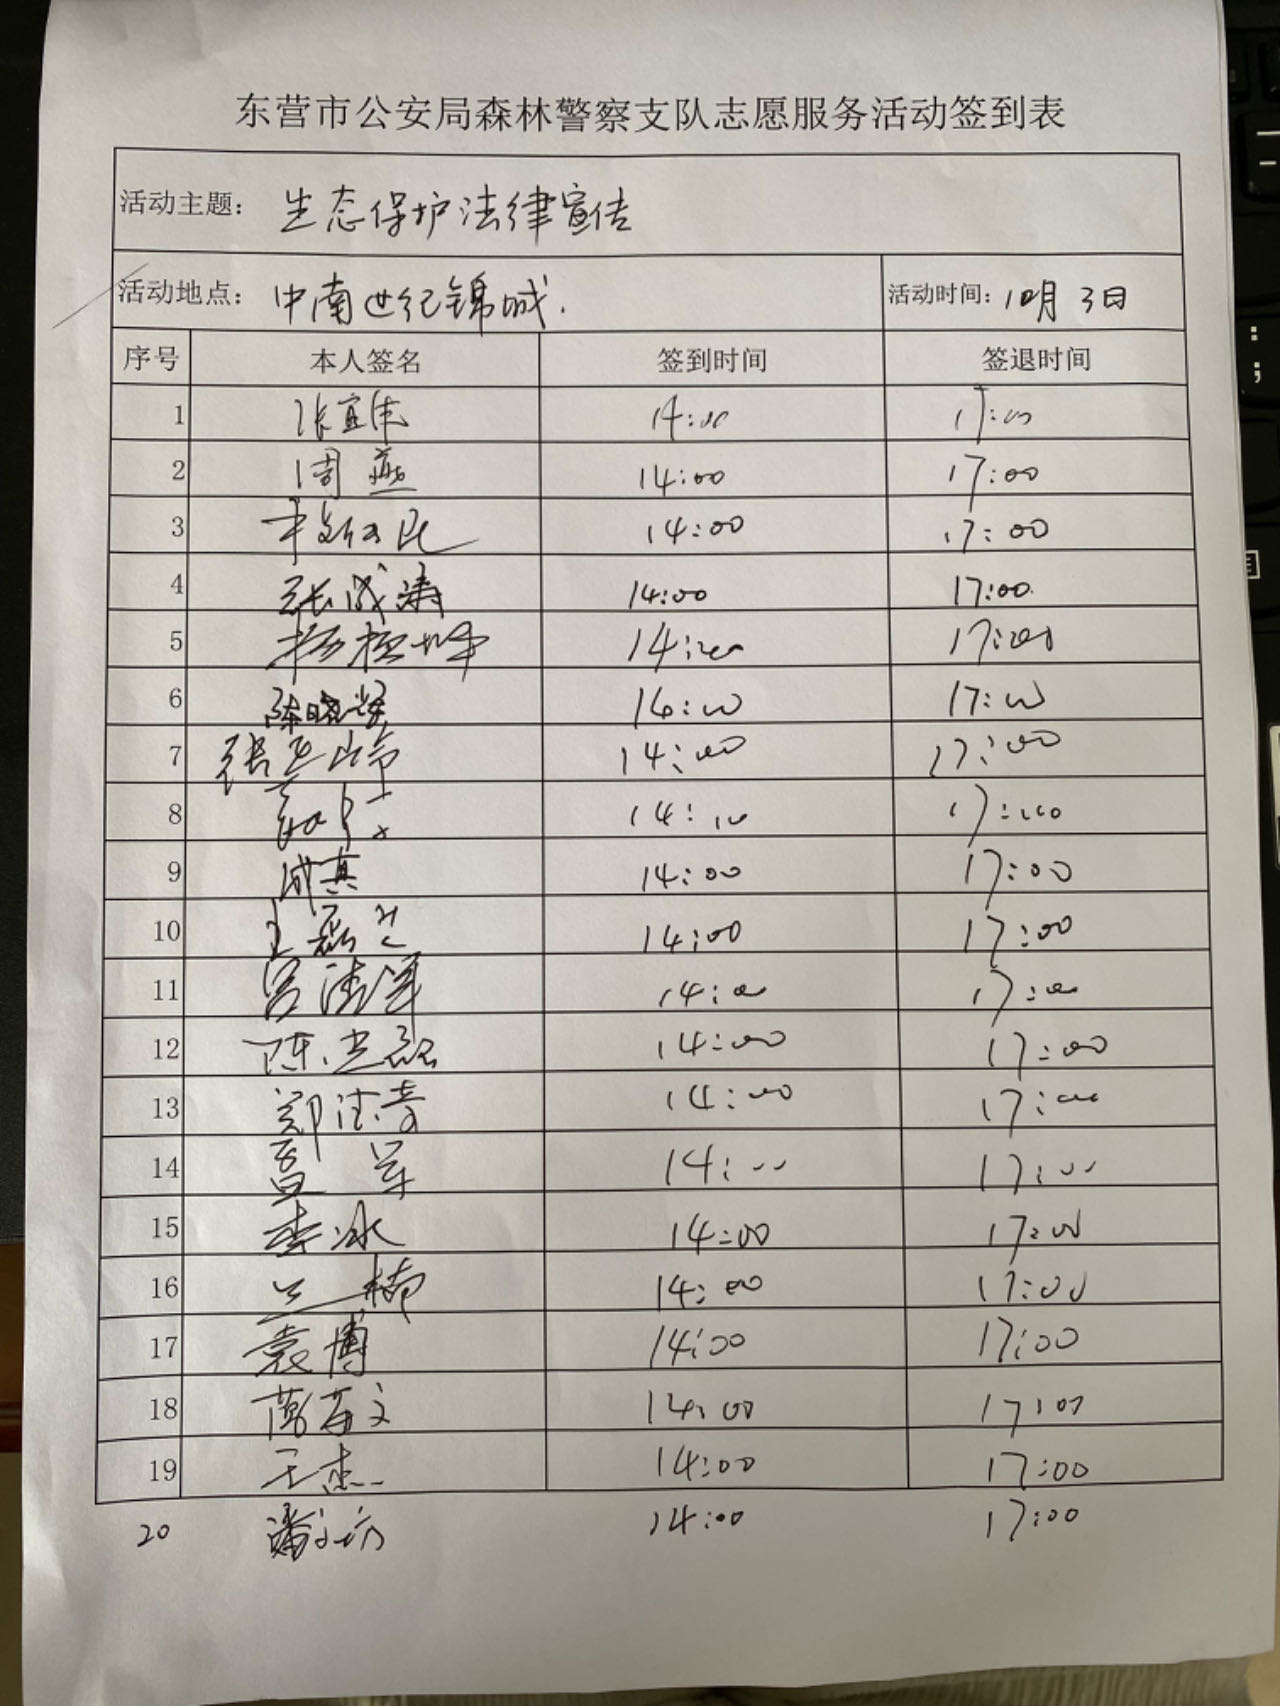 东营市公安局森林警察支队志愿服务活动签到表
活动主题: 生态保护法律宣传
活动地点: 中南世纪锦城. 活动时间: 10月3日
序号 本人签名 签到时间 签退时间
1 张宜伟 14:00 17:00
2 周燕 14:00 17:00
3 14:00 17:00
4 张成涛 14:00 17:00
5 14:00 17:00
6 陈晓 14:00 17:00
7 张 14:00 17:00
8 14:00 17:00
9 成真 14:00 17:00
10 王磊 14:00 17:00
11 吕清军 14:00 17:00
12 陈 磊 14:00 17:00
13 郑 14:00 17:00
14 军 14:00 17:00
15 李冰 14:00 17:00
16 兰楠 14:00 17:00
17 袁博 14:00 17:00
18 文 14:00 17:00
19 王杰 14:00 17:00
20 潘 14:00 17:00